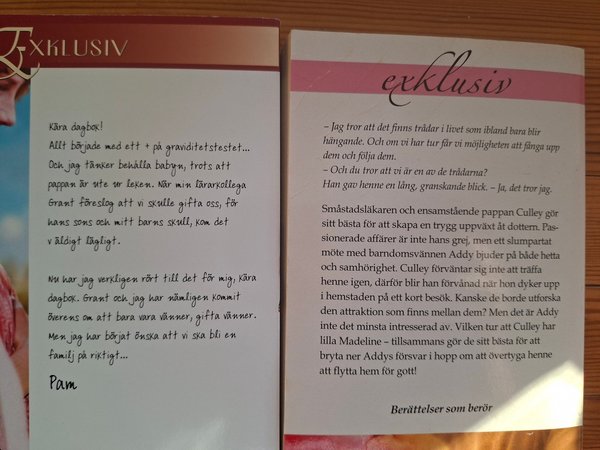 EXKLUSIV
Kära dagbok!
Allt började med ett + på graviditetstestet...
Och jag tänker behålla babyn, trots att
pappan är ute ur leken. När min lärarkollega
Grant föreslog att vi skulle gifta oss, för
hans sons och mitt barns skull, kom det
v äldigt lägligt.
Nu har jag verkligen rört till det för mig, kära
dagbok. Grant och jag har nämligen kommit
överens om att bara vara vänner, gifta vänner.
Men jag har börjat önska att vi ska bli en
familj på riktigt...
Pam
exklusiv
– Jag tror att det finns trådar i livet som ibland bara blir
hängande. Och om vi har tur får vi möjligheten att fånga upp
dem och följa dem.
– Och du tror att vi är en av de trådarna?
Han gav henne en lång, granskande blick. – Ja, det tror jag.
Småstadsläkaren och ensamstående pappan Culley gör
sitt bästa för att skapa en trygg uppväxt åt dottern. Pas-
sionerade affärer är inte hans grej, men ett slumpartat
möte med barndomsvännen Addy bjuder på både hetta
och samhörighet. Culley förväntar sig inte att träffa
henne igen, därför blir han förvånad när hon dyker upp
i hemstaden på ett kort besök. Kanske de borde utforska
den attraktion som finns mellan dem? Men det är Addy
inte det minsta intresserad av. Vilken tur att Culley har
lilla Madeline – tillsammans gör de sitt bästa för att
bryta ner Addys försvar i hopp om att övertyga henne
att flytta hem för gott!
Berättelser som berör